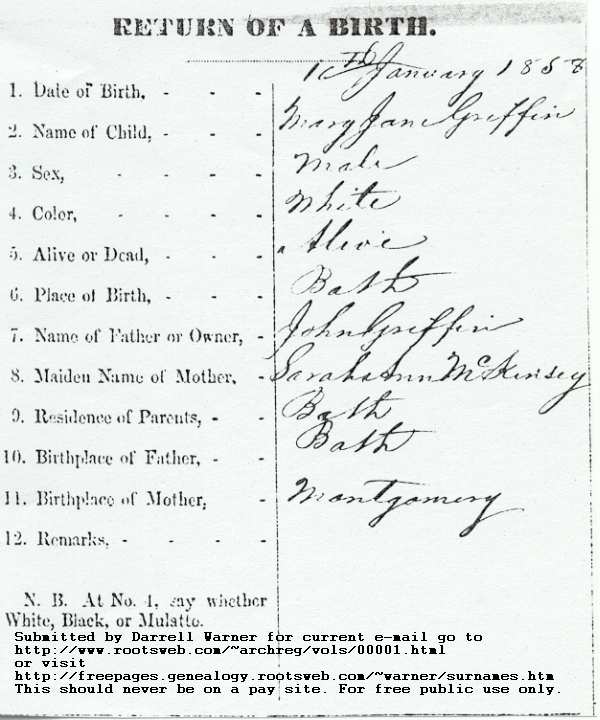 RETURN OF A BIRTH.
1. Date of Birth, - - 10th January 1858
2. Name of Child, - - - Mary Jane Griffin
3. Sex, - - - - Male
4. Color, - - - - White
5. Alive or Dead, - - - Alive
6. Place of Birth, - - - Bath
7. Name of Father or Owner, - John Griffin
8. Maiden Name of Mother, - Sarah Ann McKinsey
9. Residence of Parents, - - Bath
10. Birthplace of Father, - - Bath
11. Birthplace of Mother, - Montgomery
12. Remarks, - - - -
N. B. At No. 4, say whether
White, Black, or Mulatto.
Submitted by Darrell Warner for current e-mail go to
http://www.rootsweb.com/~archreg/vols/00001.html
or visit
http://freepages.genealogy.rootsweb.com/~warner/surnames.htm
This should never be on a pay site. For free public use only.